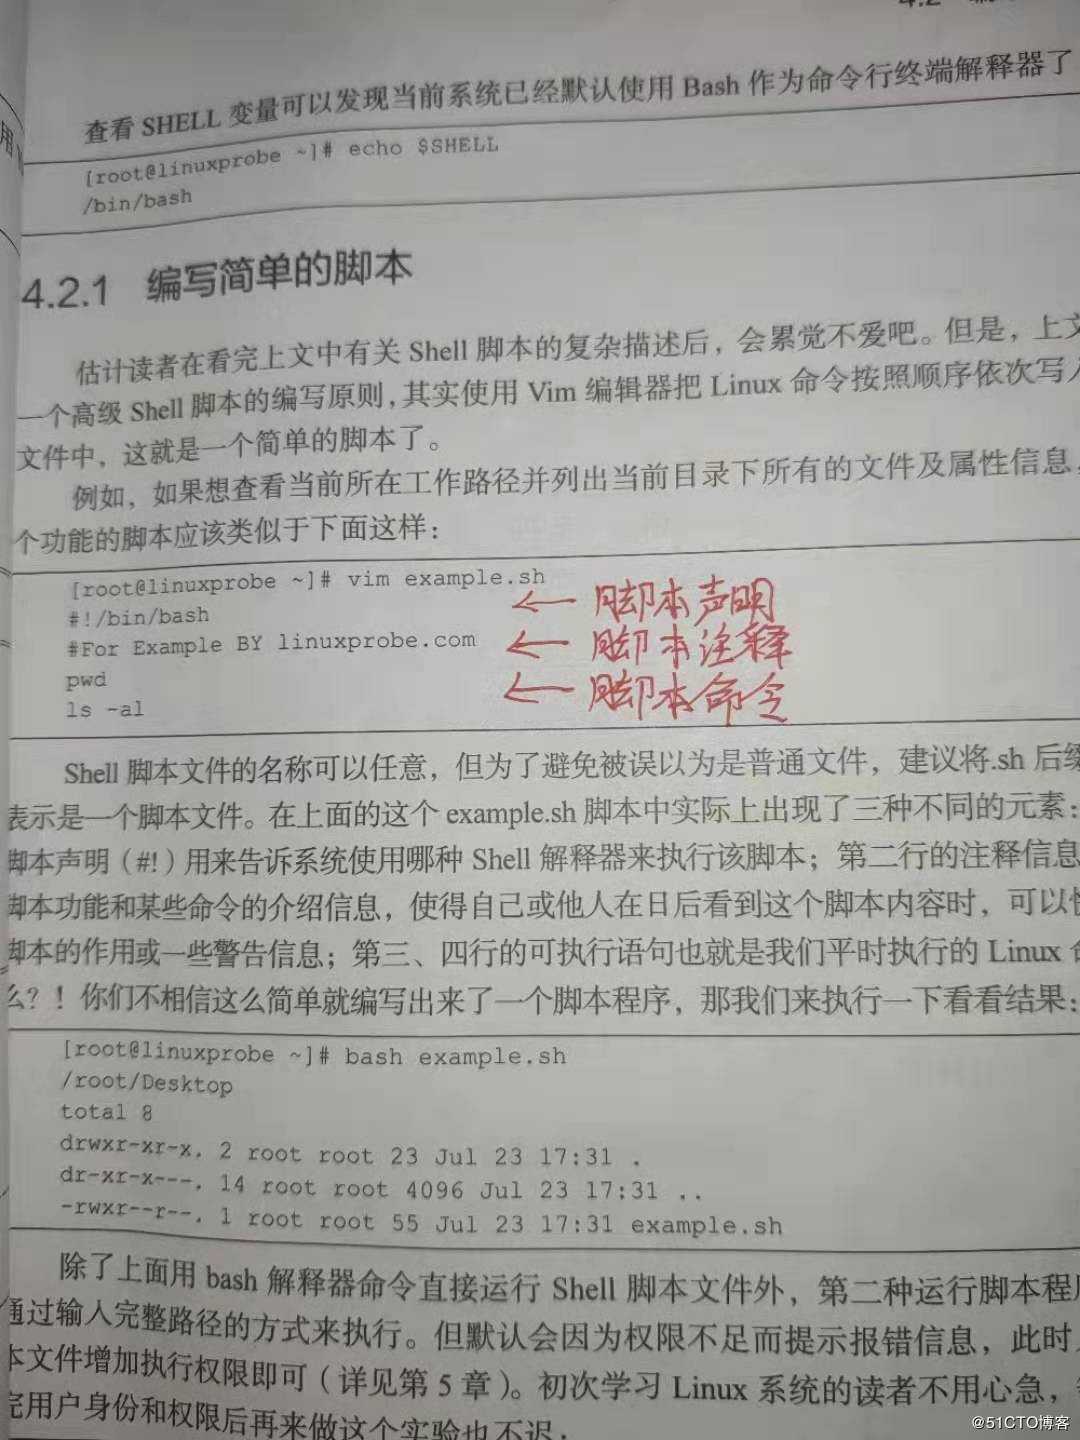 4.2 编
查看 SHELL 变量可以发现当前系统已经默认使用 Bash 作为命令行终端解释器了
用
[root@linuxprobe ~]# echo $SHELL
/bin/bash
4.2.1 编写简单的脚本
估计读者在看完上文中有关 Shell 脚本的复杂描述后，会累觉不爱吧。但是，上文
一个高级 Shell 脚本的编写原则，其实使用 Vim 编辑器把 Linux 命令按照顺序依次写入
文件中，这就是一个简单的脚本了。
例如，如果想查看当前所在工作路径并列出当前目录下所有的文件及属性信息，
个功能的脚本应该类似于下面这样：
[root@linuxprobe ~]# vim example.sh
#!/bin/bash ← 脚本声明
#For Example BY linuxprobe.com ← 脚本注释
pwd ← 脚本命令
ls -al
Shell 脚本文件的名称可以任意，但为了避免被误以为是普通文件，建议将.sh 后缀
表示是一个脚本文件。在上面的这个 example.sh 脚本中实际上出现了三种不同的元素：
脚本声明（#!）用来告诉系统使用哪种 Shell 解释器来执行该脚本；第二行的注释信息
脚本功能和某些命令的介绍信息，使得自己或他人在日后看到这个脚本内容时，可以快
脚本的作用或一些警告信息；第三、四行的可执行语句也就是我们平时执行的 Linux 命
么？！你们不相信这么简单就编写出来了一个脚本程序，那我们来执行一下看看结果：
[root@linuxprobe ~]# bash example.sh
/root/Desktop
total 8
drwxr-xr-x. 2 root root 23 Jul 23 17:31 .
dr-xr-x---. 14 root root 4096 Jul 23 17:31 ..
-rwxr--r--. 1 root root 55 Jul 23 17:31 example.sh
除了上面用 bash 解释器命令直接运行 Shell 脚本文件外，第二种运行脚本程序
通过输入完整路径的方式来执行。但默认会因为权限不足而提示报错信息，此时
本文件增加执行权限即可（详见第 5 章）。初次学习 Linux 系统的读者不用心急，
完用户身份和权限后再来做这个实验也不迟：
@51CTO博客